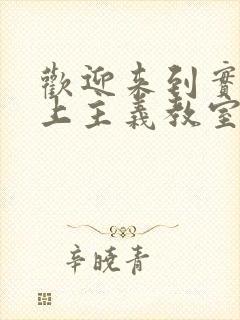 歡迎来到實
上主義教室
辛曉青